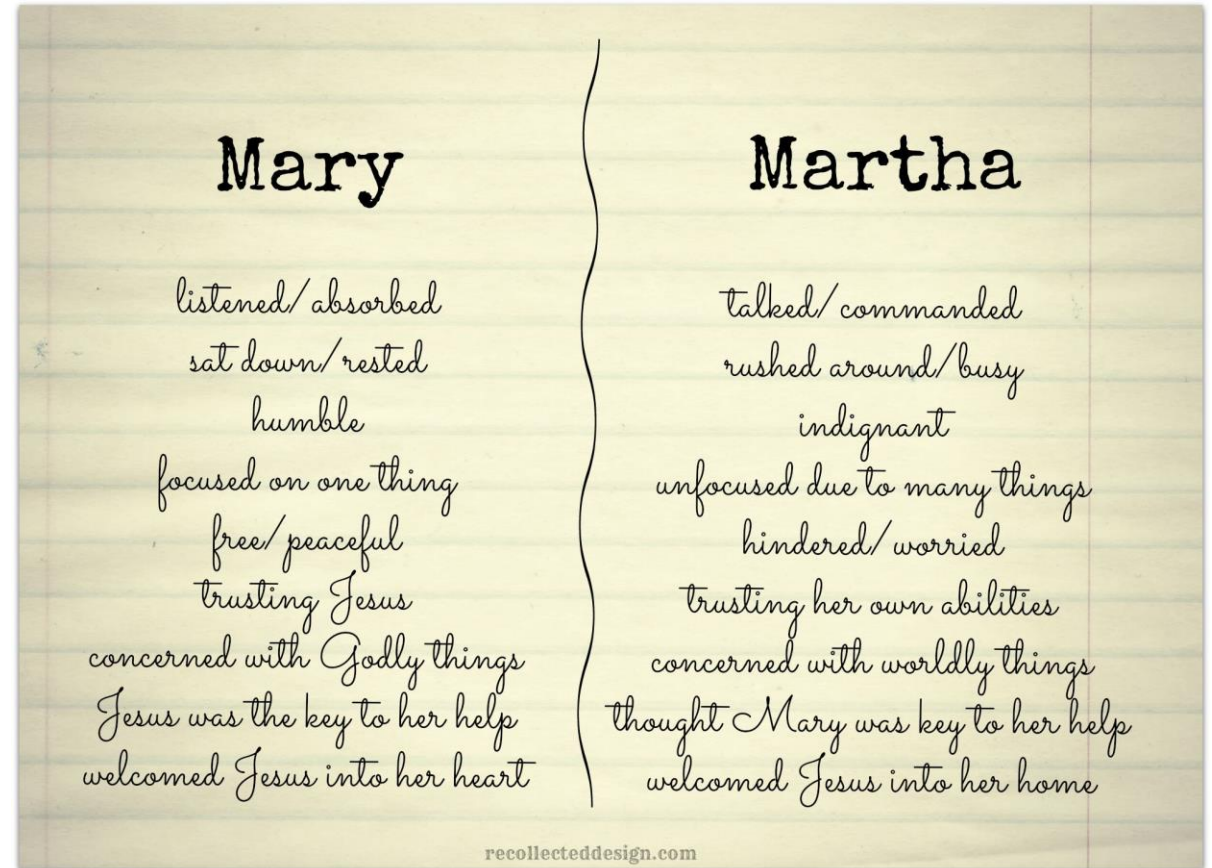 Mary
listened/absorbed
sat down/rested
humble
focused on one thing
free/peaceful
trusting Jesus
concerned with Godly things
Jesus was the key to her help
welcomed Jesus into her heart
Martha
talked/commanded
rushed around/busy
indignant
unfocused due to many things
hindered/worried
trusting her own abilities
concerned with worldly things
thought Mary was key to her help
welcomed Jesus into her home
recollecteddesign.com